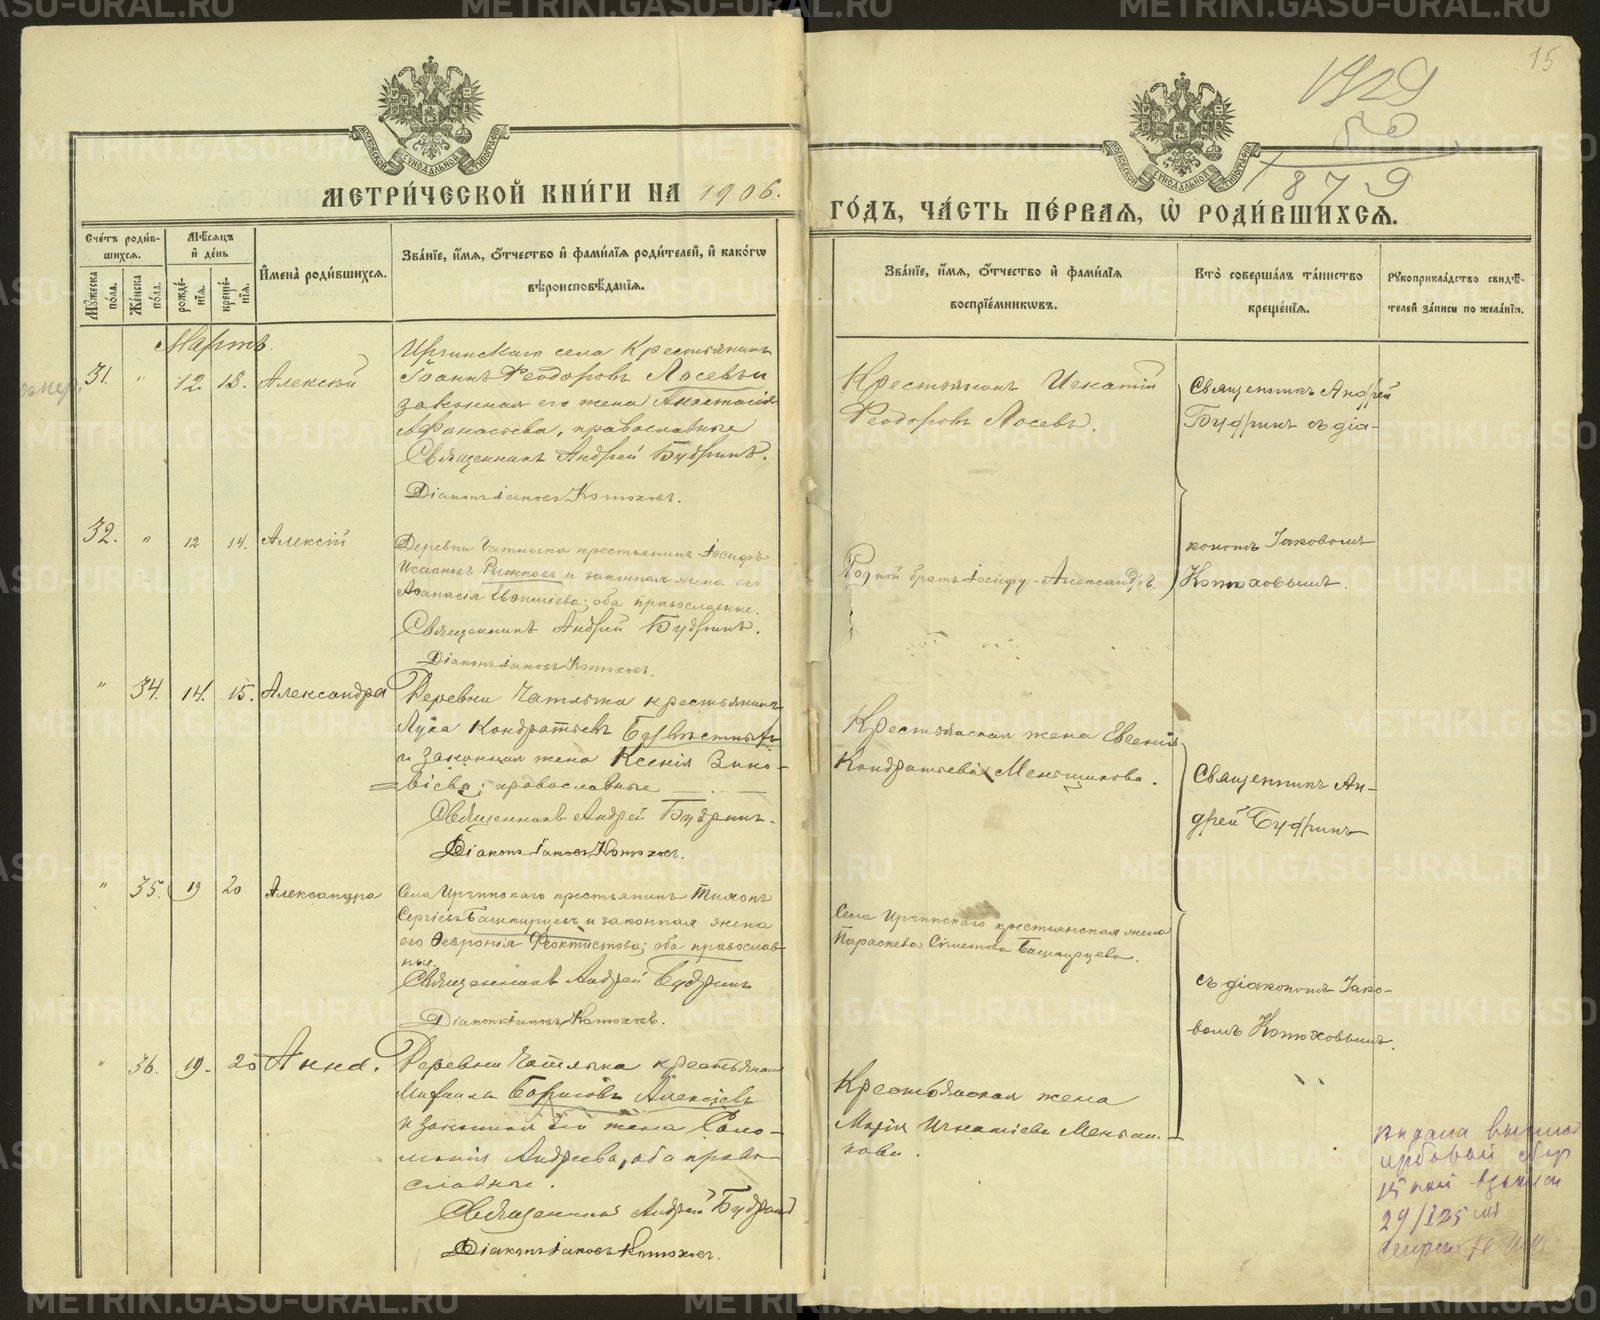 15
1929
50
1879
МЕТРИ́ЧЕСКОЙ КНИ́ГИ НА 1906.
ГО́ДЪ, ЧА́СТЬ ПЕ́РВАЯ, Ѡ҆ РОДИ́ВШИХСЯ.
Сче́тъ роди́в-
шихся.
Мѣ́сяцъ
и҆ де́нь
И҆мена̀ роди́вшихся.
Зва́нїе, и҆́мя, ѻ҆́тчество и҆ фами́лїя роди́телей, и҆ како́гѡ
вѣроисповѣ́данїя.
Мꙋ́жеска по́ла.
Же́нска по́ла.
рожде́-
нїя.
креще́-
нїя.
Зва́нїе, и҆́мя, ѻ҆́тчество и҆ фами́лїя
воспрїе́мникѡвъ.
Кто̀ соверша́лъ та́инство
креще́нїя.
Рꙋкоприкла́дство свидѣ́-
телей за́писи по жела́нїю.
Мартъ
31. " 12. 13. Алексѣй
Иргинскаго села Крестьянинъ
Іоаннъ Ѳеодоровъ Лосевъ и
законная его жена Анастасія
Аѳанасьева, православные
Священникъ Андрей Будринъ.
Діаконъ Іаковъ Котюховъ.
Крестьянинъ Игнатій
Ѳеодоровъ Лосевъ.
Священникъ Андрей
Будринъ съ діа-
32. " 12 14. Алексій
Деревни Чатлыка крестьянинъ Іосифъ
Исааковъ Рыжковъ и законная жена его
Аѳанасія Евѳиміева; оба православные.
Священникъ Андрей Будринъ.
Діаконъ Іаковъ Котюховъ.
Родной братъ Іосифу - Александръ.
кономъ Іаковомъ
Котюховымъ.
" 34. 14. 15. Александра
Деревни Чатлыка крестьянинъ
Лука Кондратьевъ
и законная жена Ксенія Зино-
віева; православные
Священникъ Андрей Будринъ.
Діаконъ Іаковъ Котюховъ.
Крестьянская жена Евгенія
Кондратьева Меньшикова.
Священникъ Ан-
дрей Будринъ
" 35. 19 20 Александра
Села Иргинскаго крестьянинъ Тихонъ
Сергіевъ Башкирцевъ и законная жена
его Ѳевронія Ѳеоктистова; оба православ-
ные.
Священникъ Андрей Будринъ
Діаконъ Іаковъ Котюховъ.
Села Иргинскаго крестьянская жена
Параскева Симеонова Башкирцева.
съ діакономъ Іако-
вомъ Котюховымъ.
" 36. 19. 20 Анна.
Деревни Чатлыка крестьянинъ
Михаилъ Борисовъ Алексіевъ
и законная его жена Соло-
монія Андреева, оба право-
славные.
Священникъ Андрей Будринъ
Діаконъ Іаковъ Котюховъ.
Крестьянская жена
Марія Игнатіева Меньши-
кова.
29/135